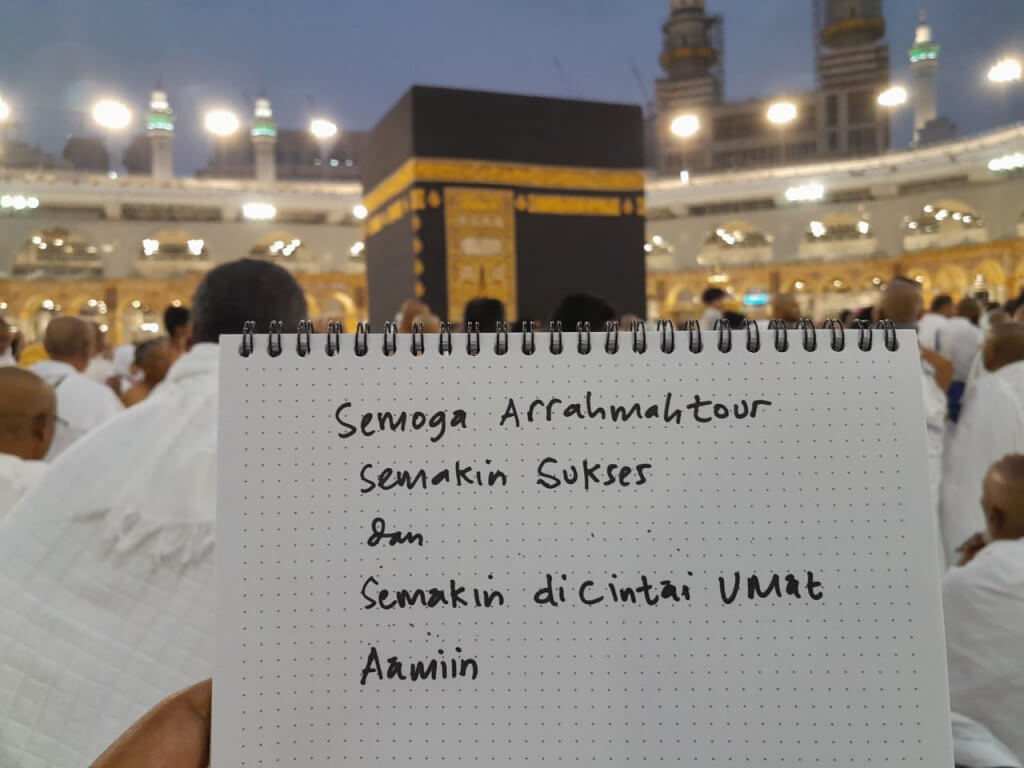 Semoga Arrahmahtour
Semakin Sukses
dan
Semakin dicintai UMat
Aamiin